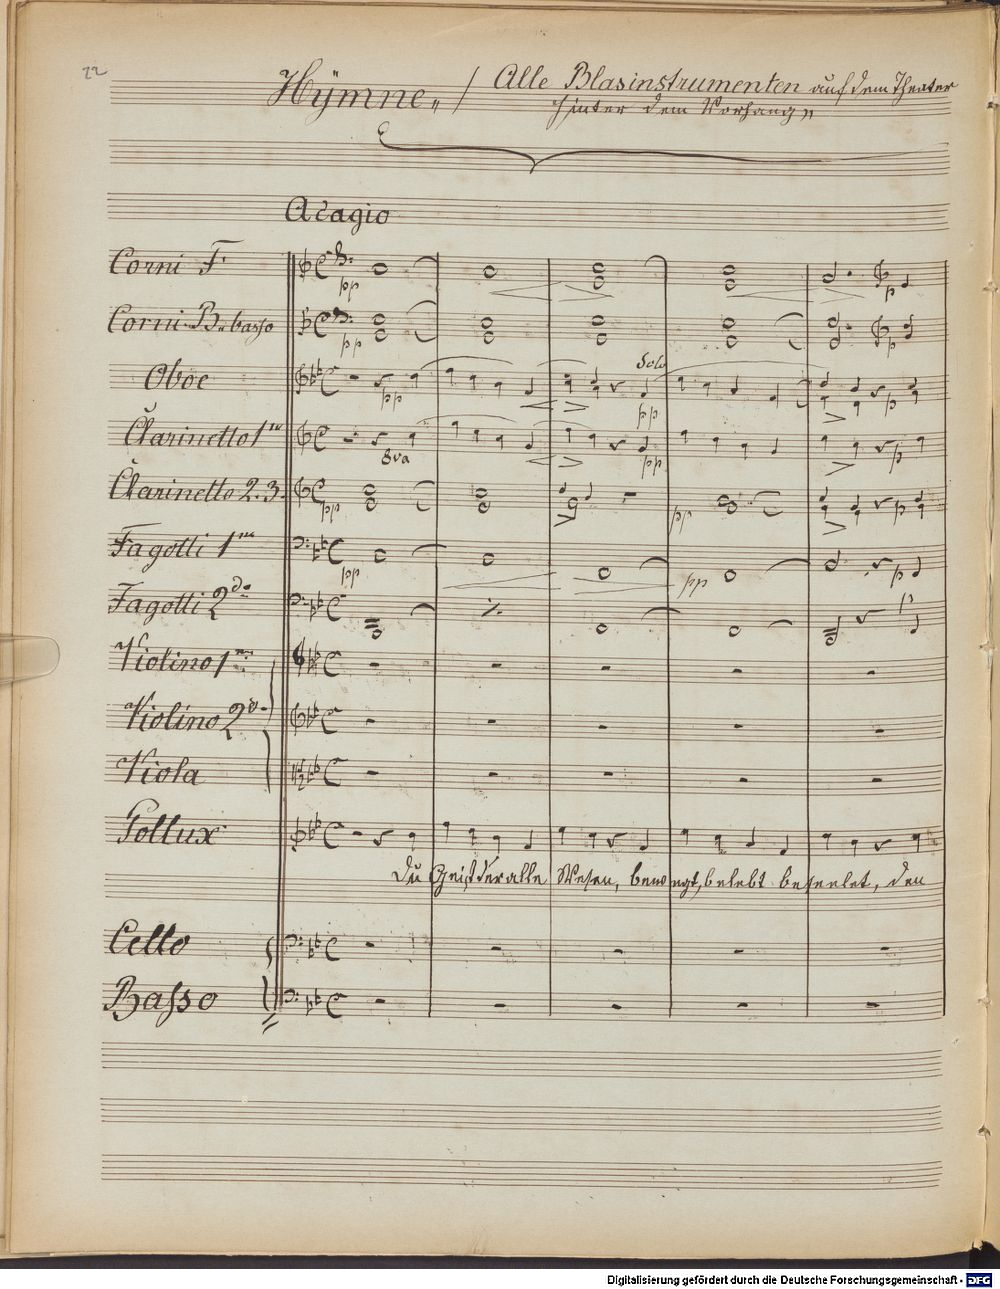 22
Hÿmne„ / Alle Blasinstrumenten auf dem Theater
hinter dem Vorhang„
Adagio
Corni F.
pp
p
Corni B basso
pp
p
Oboe
pp
Solo
pp
p
Clarinetto 1mo
8va
pp
p
Clarinetto 2. 3.
pp
pp
p
Fagotti 1mo
pp
pp
p
Fagotti 2do
Violino 1mo
Violino 2do
Viola
Pollux
Du Geist der alle Wesen, bewegt, belebt beseelet, den
Cello
Basso
Digitalisierung gefördert durch die Deutsche Forschungsgemeinschaft - DFG